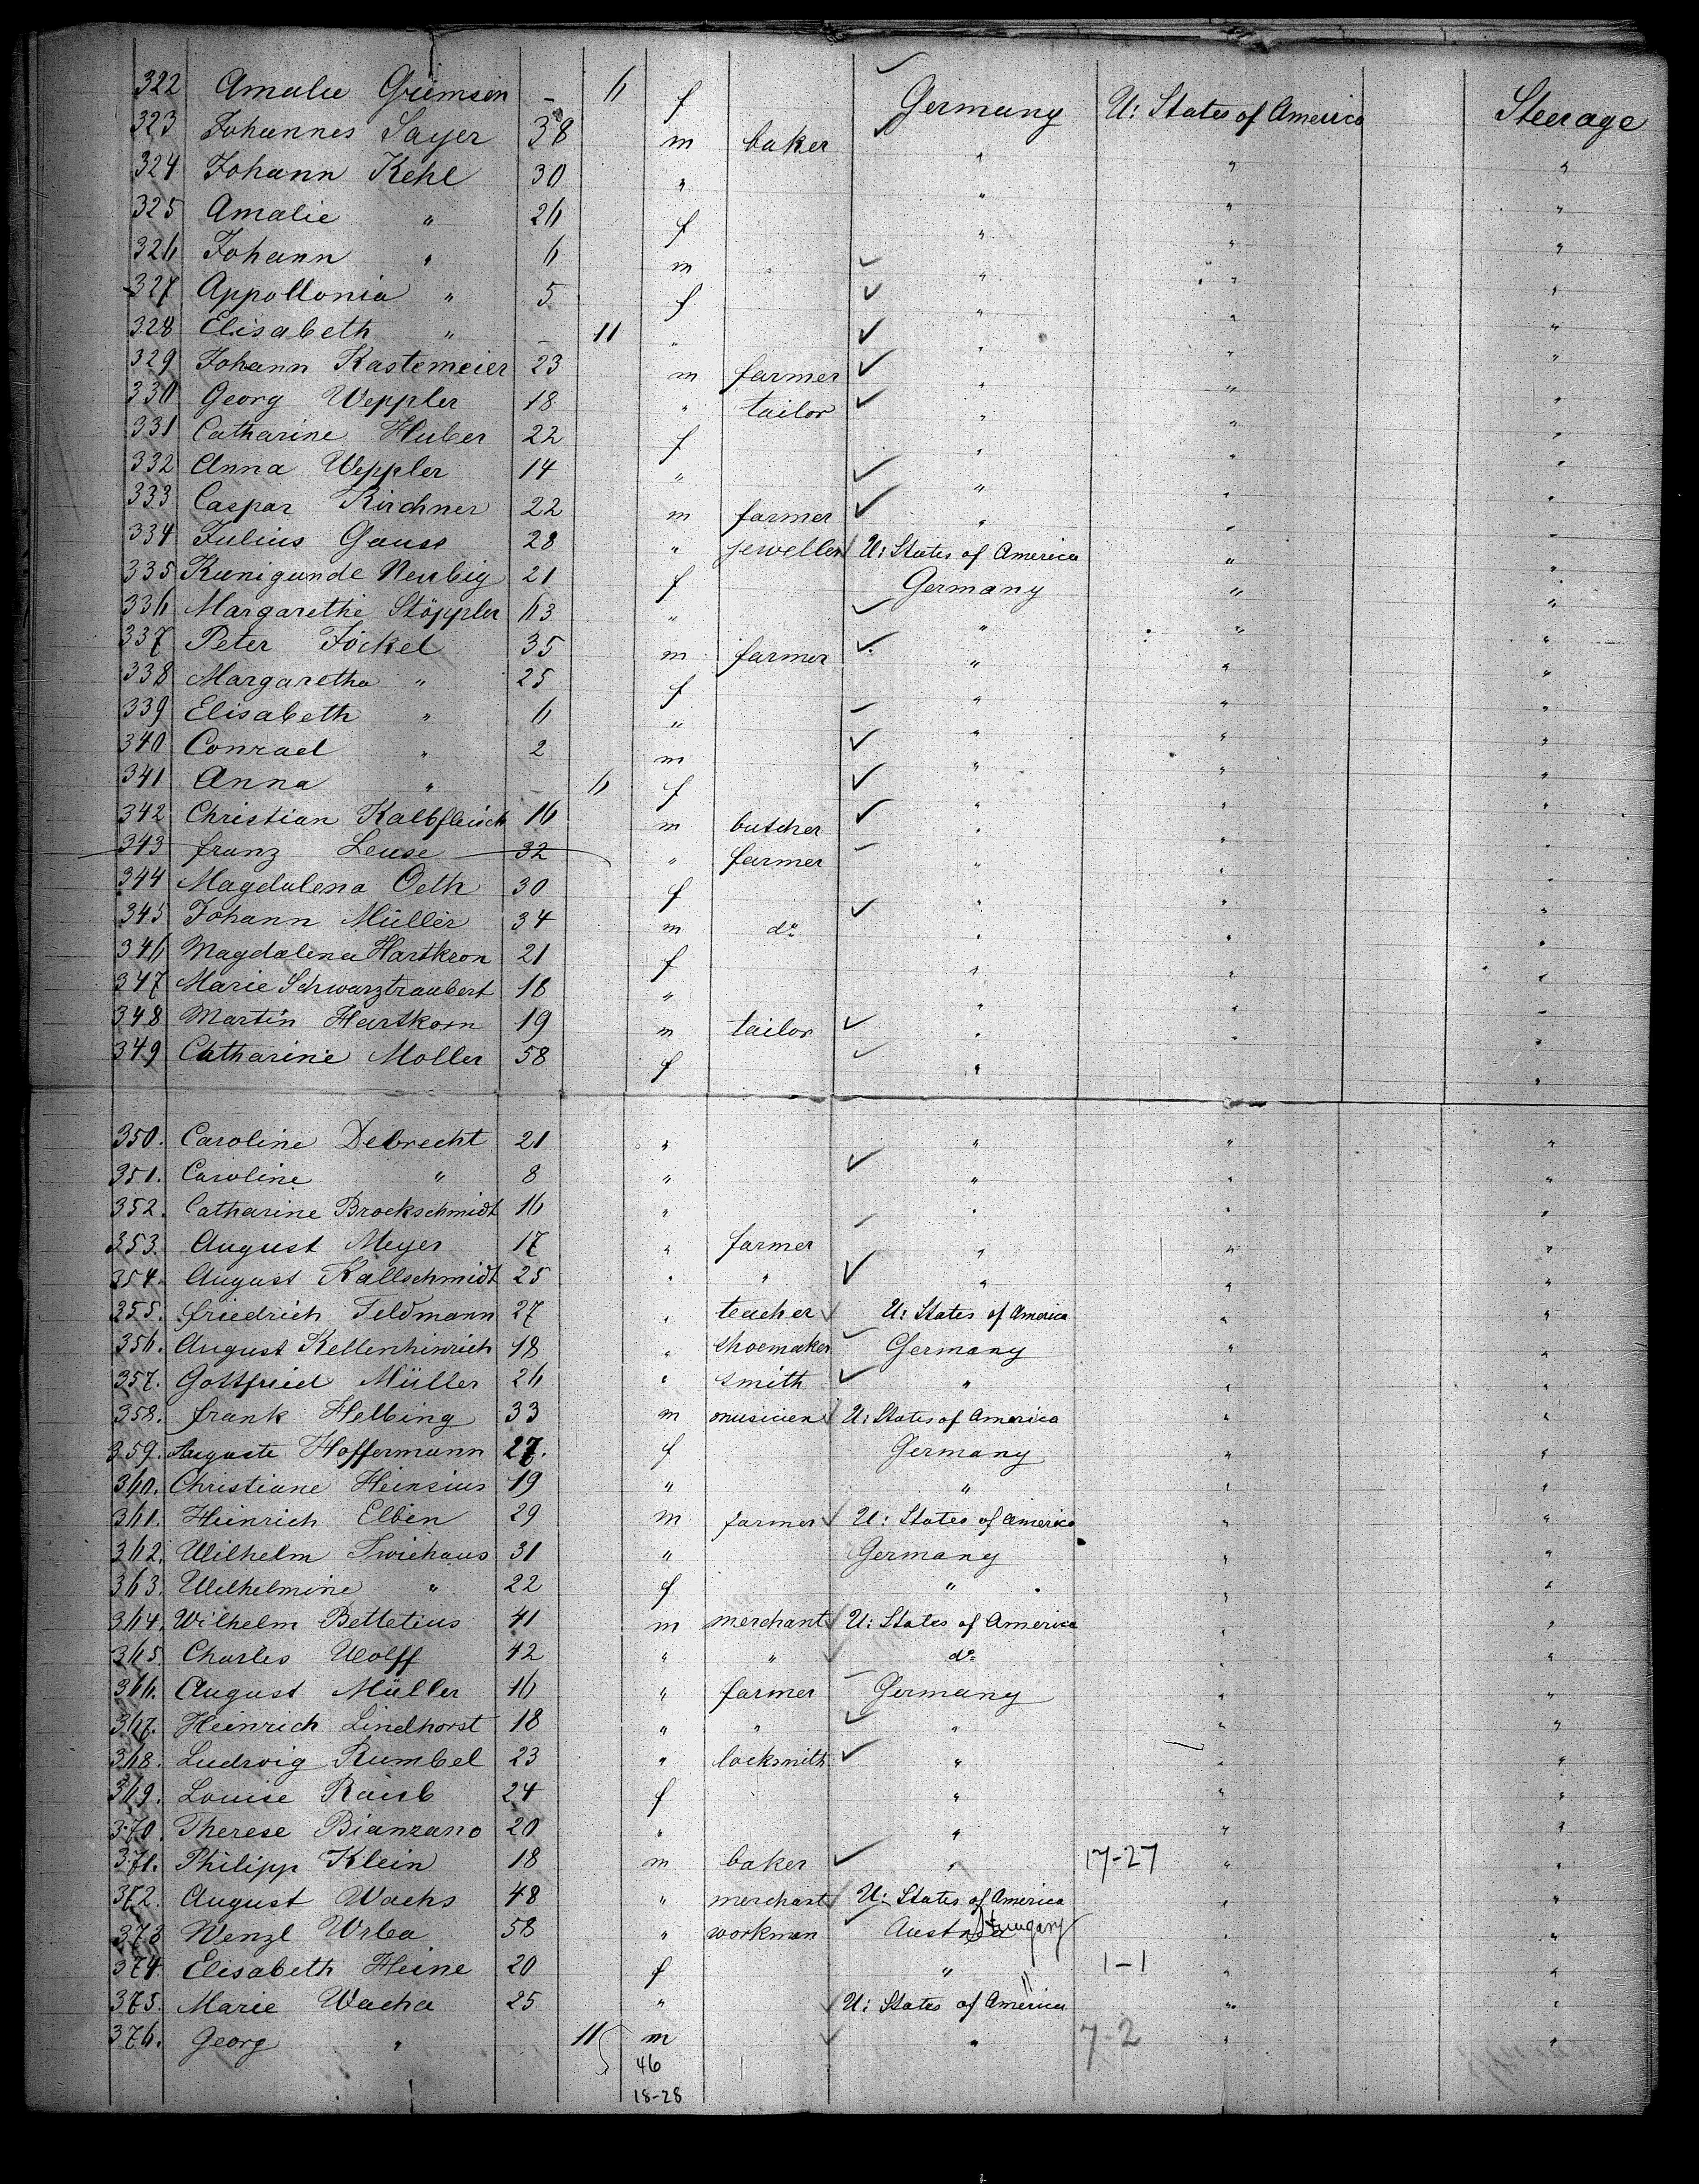 322 Amalie Griemsen – 6 f Germany U: States of America Steerage
323 Johannes Sayer 38 m baker " " "
324 Johann Kehl 30 " " " "
325 Amalie " 26 f " " "
326 Johann " 6 m " " "
327 Appollonia " 5 f " " "
328 Elisabeth " – 11 " " " "
329 Johann Kastemeier 23 m farmer " " "
330 Georg Weppler 18 " tailor " " "
331 Catharine Huber 22 f " " "
332 Anna Weppler 14 " " " "
333 Caspar Kirchner 22 m farmer " " "
334 Julius Gauss 28 " jeweller U: States of America " "
335 Kunigunde Neubig 21 f Germany " "
336 Margarethe Stöppler 63 " " " "
337 Peter Föckel 35 m farmer " " "
338 Margaretha " 25 f " " "
339 Elisabeth " 6 " " " "
340 Conrad " 2 m " " "
341 Anna " – 6 f " " "
342 Christian Kalbfleisch 16 m butcher " " "
343 Franz Leuse 32 " farmer " " "
344 Magdalena Oeth 30 f " " "
345 Johann Müller 34 m do " " "
346 Magdalena Hartkron 21 f " " "
347 Marie Schwarztraubert 18 " " " "
348 Martin Hartkorn 19 m tailor " " "
349 Catharine Moller 58 f " "
350. Caroline Debrecht 21 " " " "
351. Caroline " 8 " " " "
352. Catharine Brockschmidt 16 " " " "
353. August Meyer 17 " farmer " " "
354. August Kallschmidt 25 " " " " "
355. Friedrich Feldmann 27 " teacher U: States of America " "
356. August Kellenhinrich 18 " shoemaker Germany " "
357. Gottfried Müller 26 " smith " " "
358. Frank Helbing 33 m musicien U: States of America " "
359. Auguste Hoffermann 27. f Germany " "
360. Christiane Heinsius 19 " " " "
361. Heinrich Elbin 29 m farmer U: States of America " "
362. Wilhelm Twiehaus 31 " Germany " "
363. Wilhelmine " 22 f " " "
364. Wilhelm Bettetius 41 m merchant U: States of America " "
365. Charles Wolff 42 " " do " "
366. August Müller 16 " farmer Germany " "
367. Heinrich Lindhorst 18 " " " " "
368. Ludwig Rumbel 23 " locksmith " " "
369. Louise Raub 24 f " " "
370. Therese Bianzano 20 " " " "
371. Philipp Klein 18 m baker " 17-27 " "
372. August Wachs 48 " merchant U: States of America " "
373 Wenzl Wrba 58 " workman Austria Hungary " "
374. Elisabeth Heine 20 f " " 1-1 " "
375. Marie Wacha 25 " U: States of America " "
376. Georg " 11 m " 7-2 " "
46
18-28